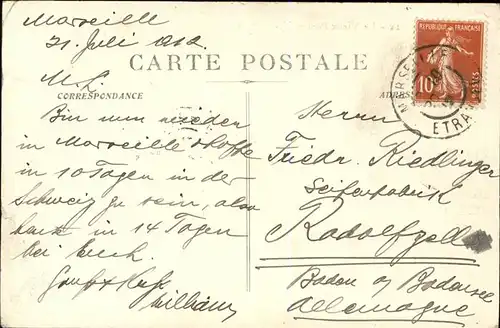 Marseille
21. Juli 1912.
CARTE POSTALE
CORRESPONDANCE
M. L.
Bin nun wieder
in Marseille & hoffe
in 10 Tagen in der
Schweiz zu sein, also
in 14 Tagen
bei Euch.
Gruß & Kuß
William
REPUBLIQUE FRANÇAISE
10
POSTES
MARSEILLE
ETRA
Herrn
Friedr. Riedlinger
Seifenfabrik
Radolfzell
Baden a/ Bodensee
Allemagne